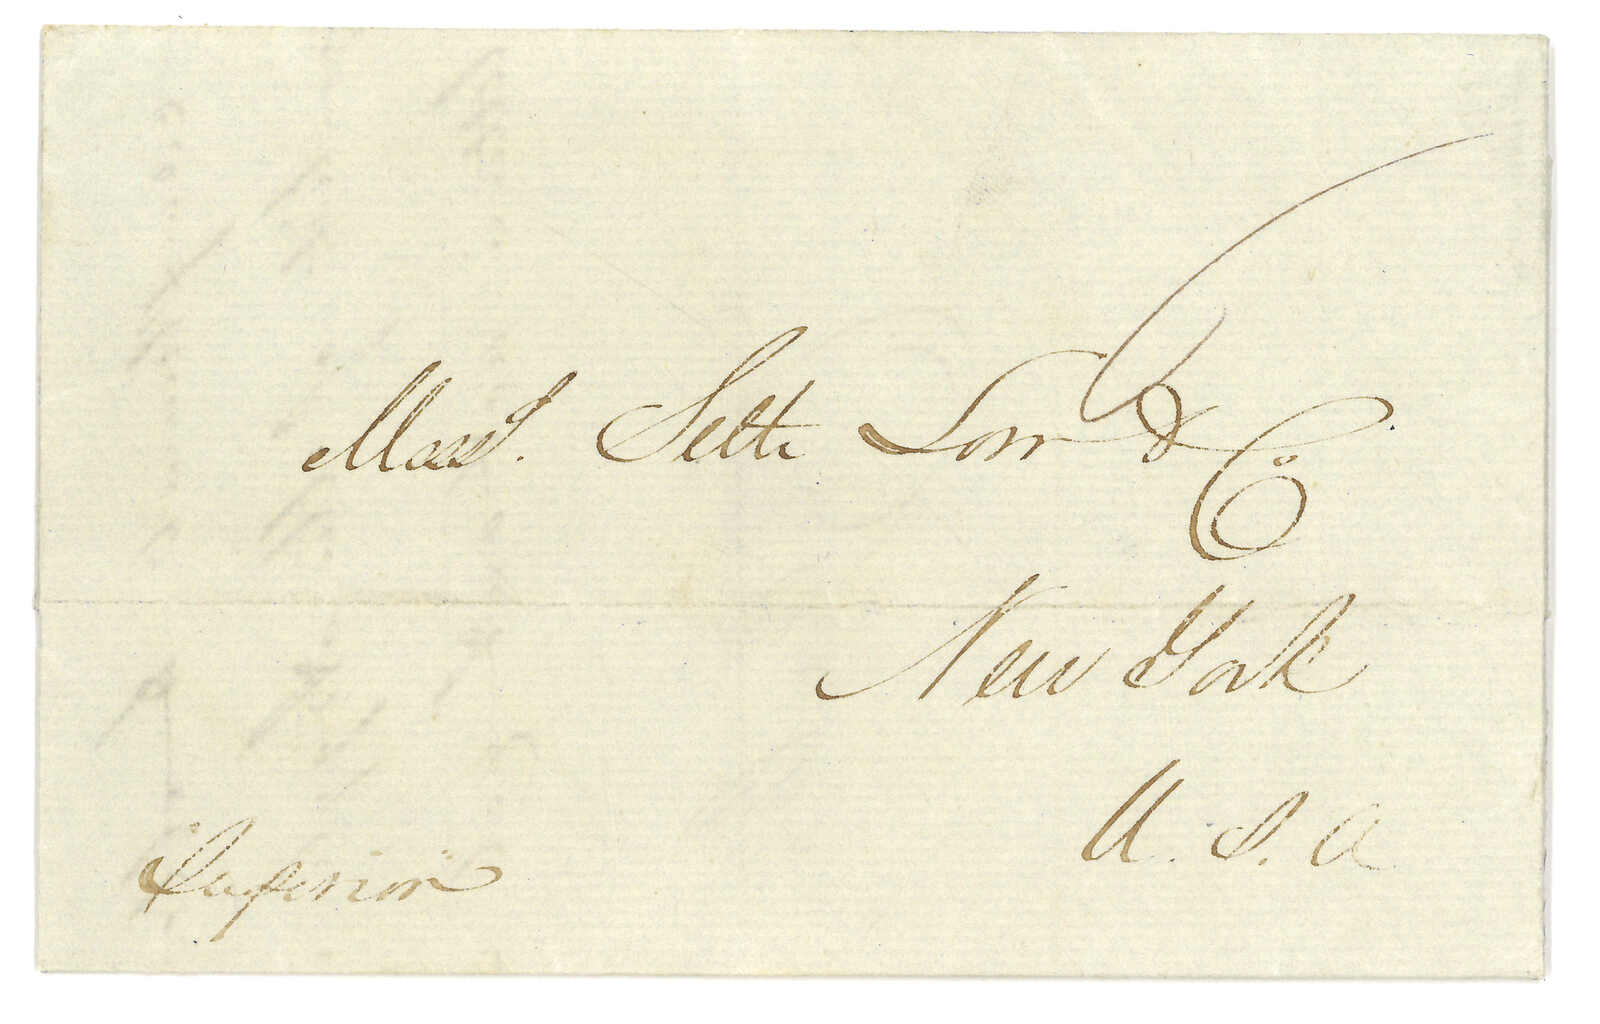 Mess.rs Seth Low & Co.
New York
U. S. A
Superior